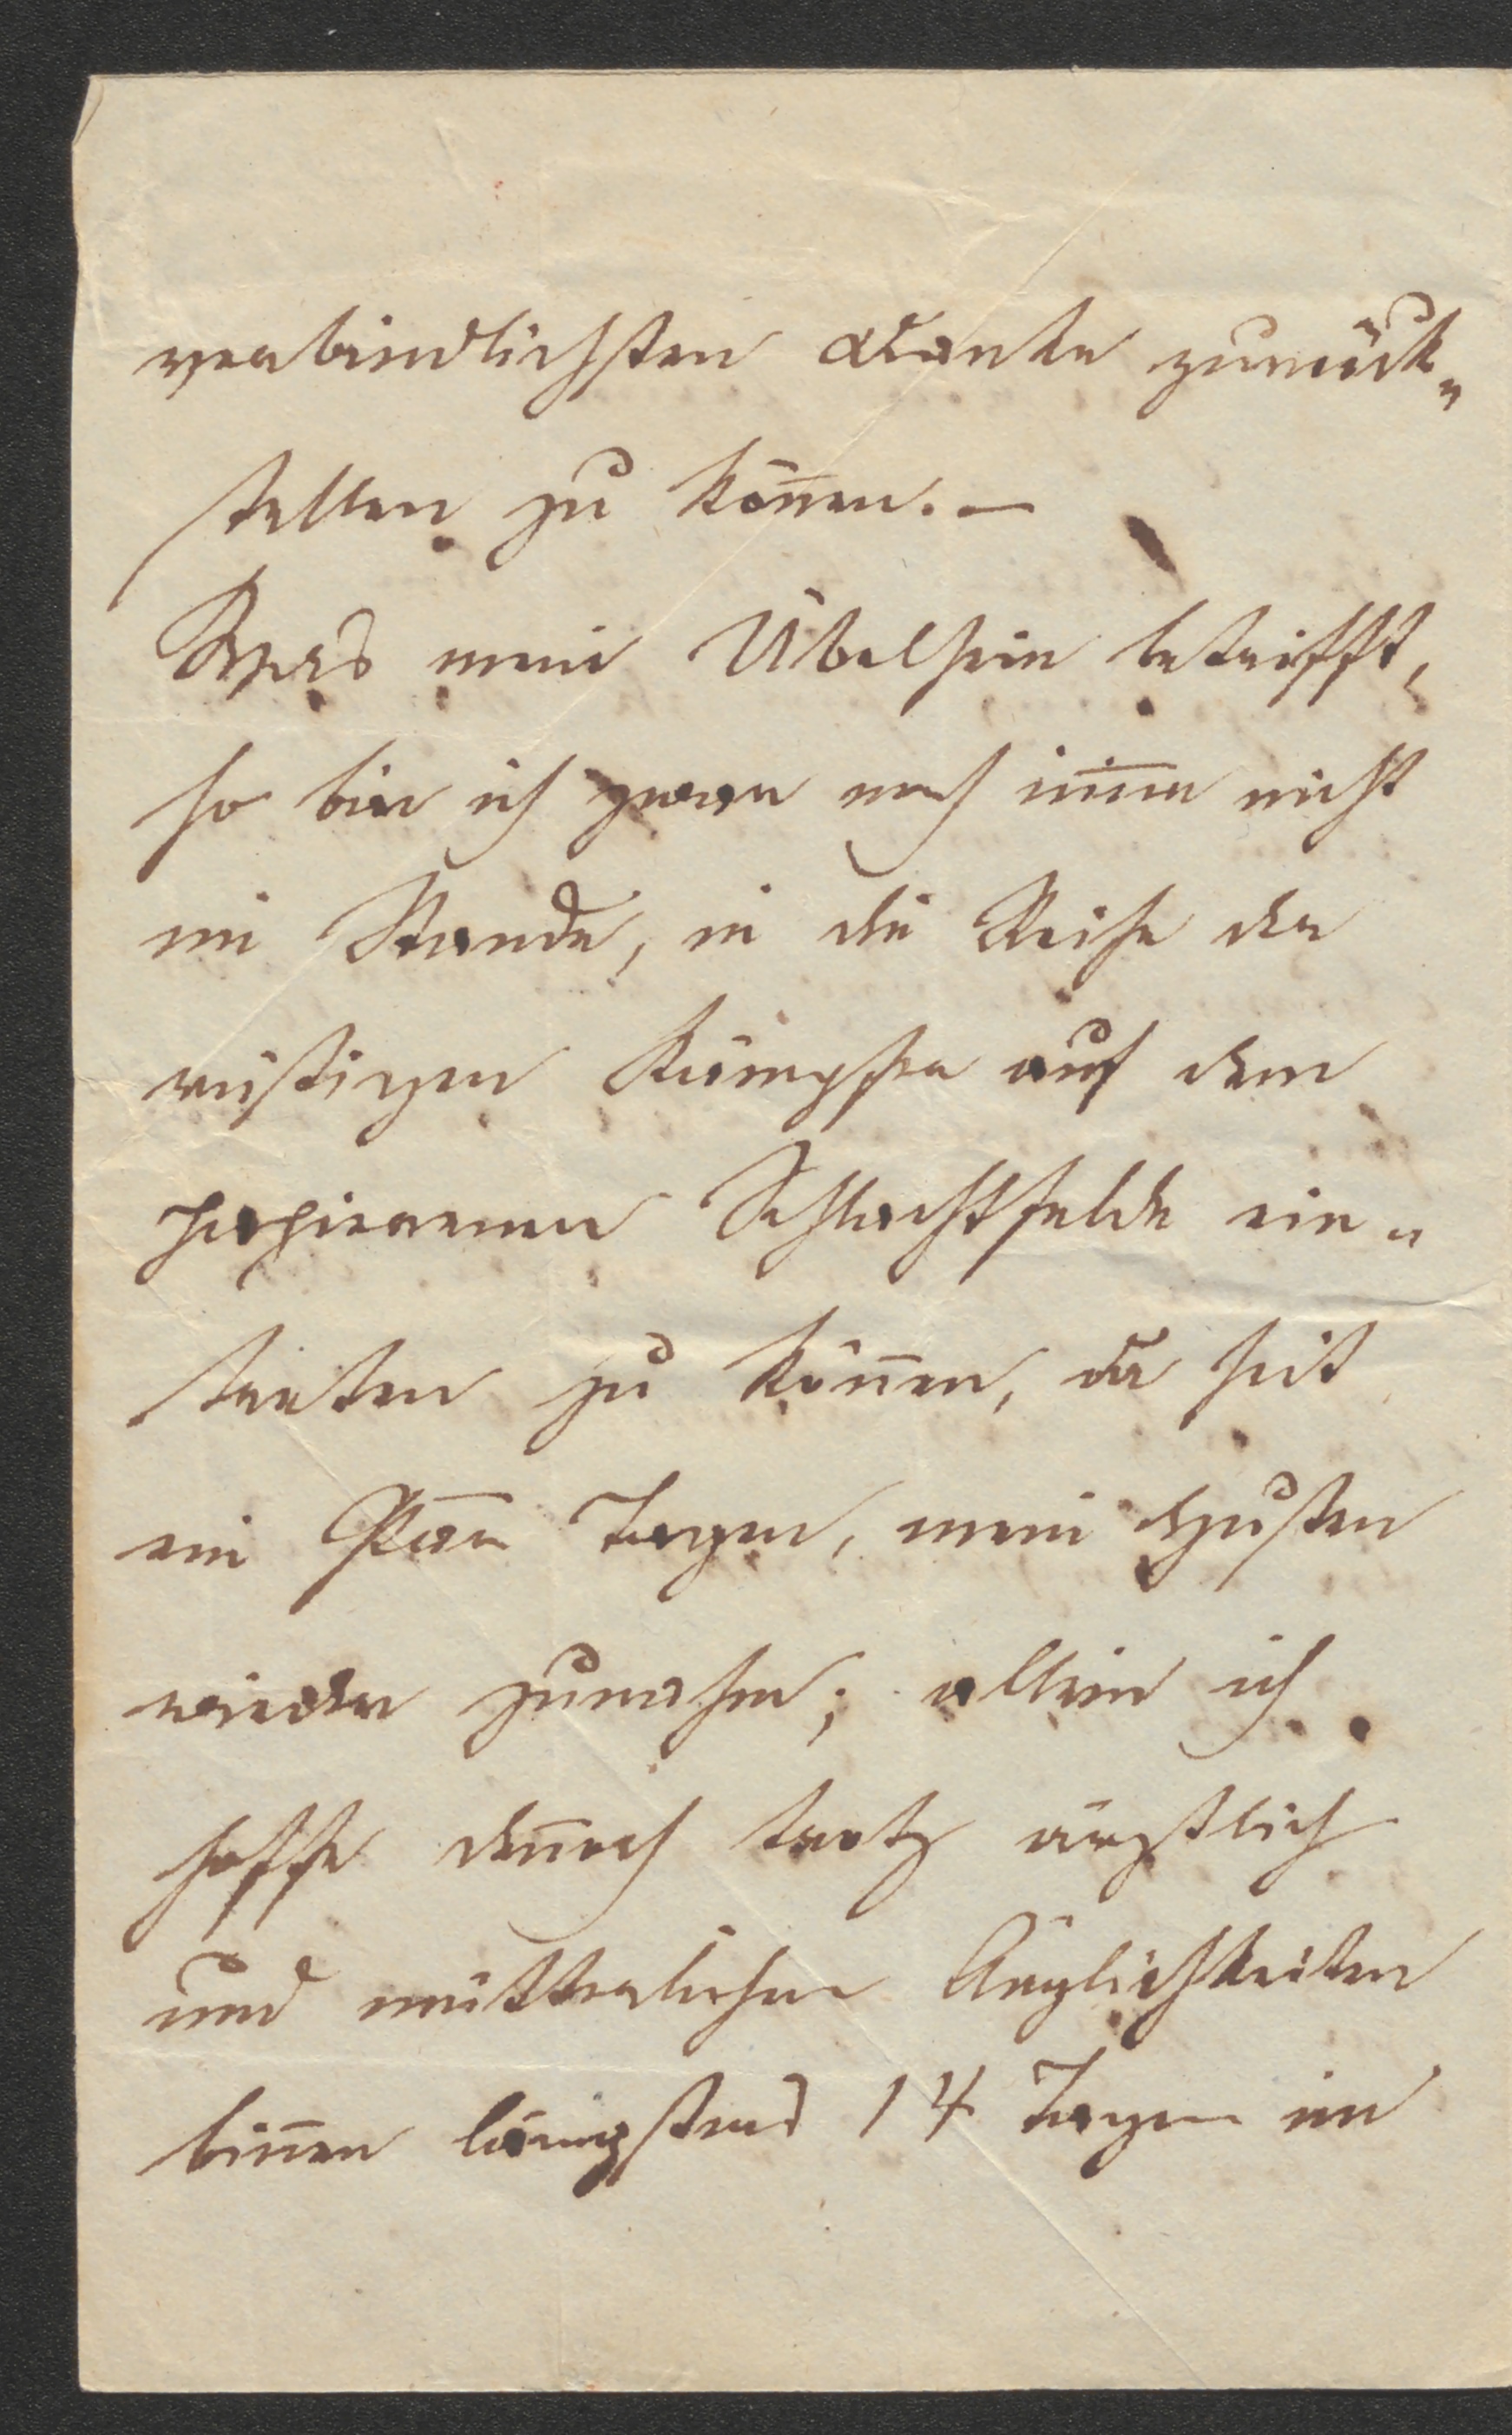 verbindlichsten Danke zurück„
stellen zu kön̅en. –
Was mein Übelsein betrifft,
so bin ich zwar noch im̅er nicht
im Stande, in die Reihe der
rüstigen Kämpfer auf dem
papierenen Schlachtfelde ein„
treten zu kön̅en, da seit
ein Paar Tagen, mein Husten
wieder zunahm; allein ich
hoffe den̅och trotz ärztlich
und mütterlichen Änglichkeiten
bin̅en längstens 14 Tagen im